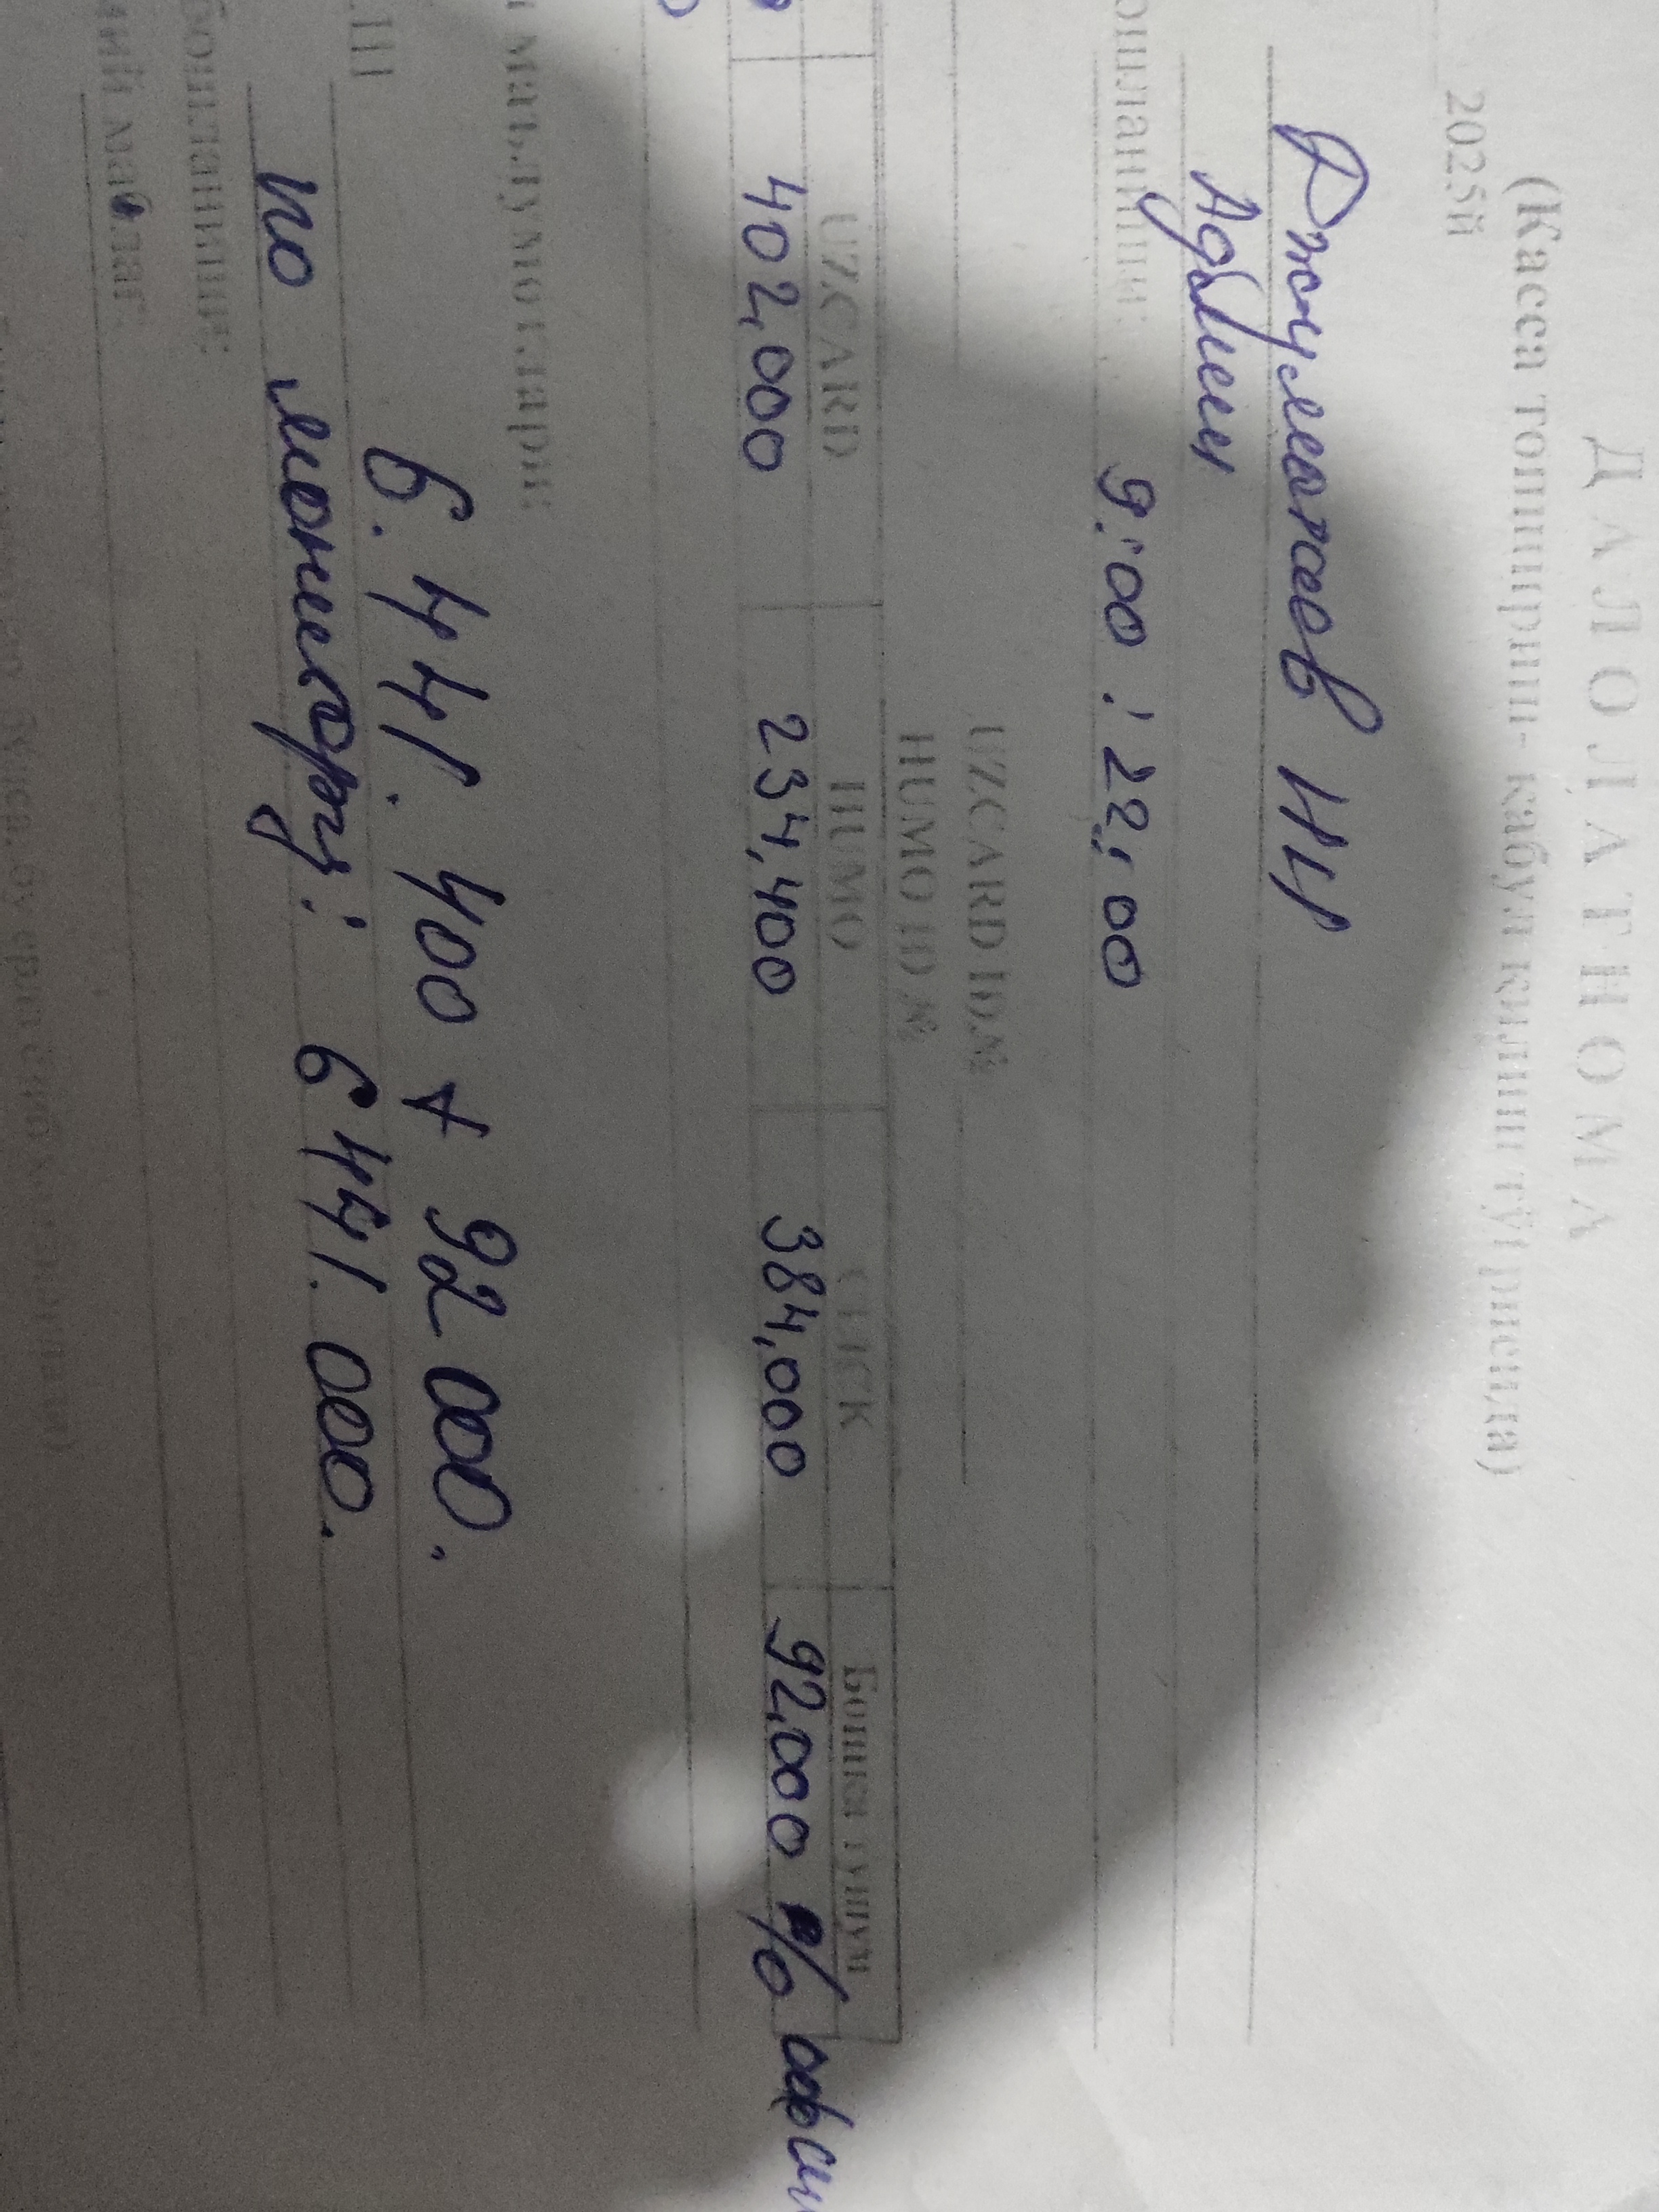 ДАЛОЛАТНОМА
(Касса топшириш- кабул килиш тўғрисида)
2025й
Джуматов НИ
Админ
бошланиши: 9:00 : 22:00
UZCARD ID№
HUMO ID №
UZCARD HUMO CLICK Бошка тушум
402,000 234,400 384,000 92,000 %
маълумотлари:
6.441.400 + 92 000.
по монитору: 6 441. 000.